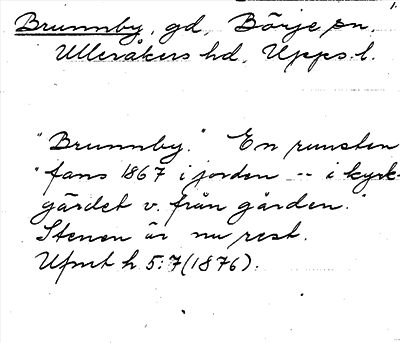 1.
Brunnby, gd, Börje sn,
Ulleråkers hd, Upps. l.
"Brunnby." En runsten
"fans 1867 i jorden -- i kyrk-
gärdet v. från gården."
Stenen är nu rest.
Ufmt h 5:7 (1876).